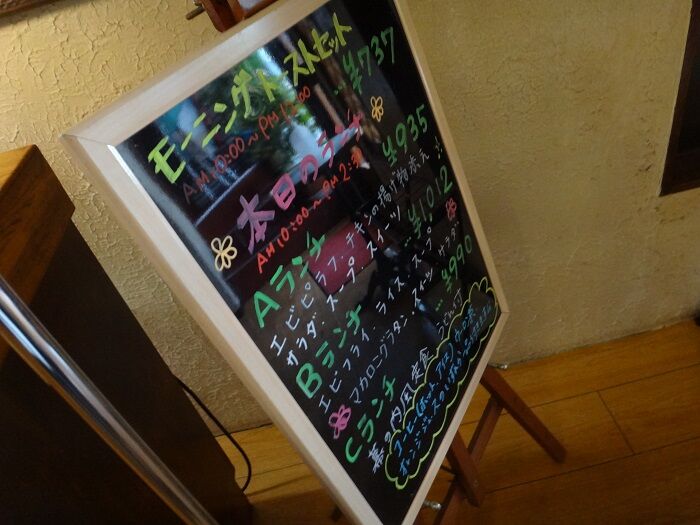 モーニングトーストセット
AM 10:00〜PM 12:00 …¥737
本日のランチ
AM 10:00〜PM 2:30
Aランチ …¥935
エビピラフ、チキンの揚げ物添え
サラダ・スープ・スイーツ
Bランチ …¥1012
エビフライ・ライス・スープ
マカロニグラタン・スイーツ・サラダ
Cランチ …¥990
幕の内風定食